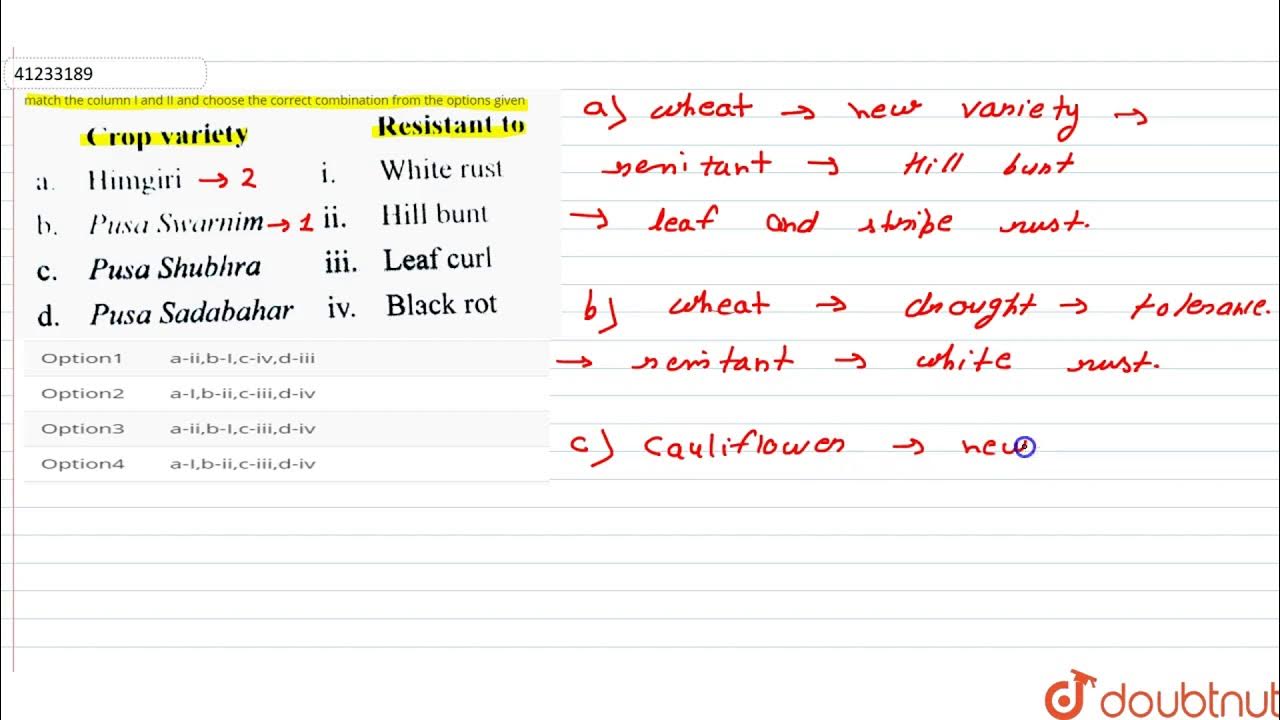 41233189
match the column I and II and choose the correct combination from the options given
Crop variety Resistant to
a. Himgiri → 2 i. White rust
b. Pusa Swarnim → 1 ii. Hill bunt
c. Pusa Shubhra iii. Leaf curl
d. Pusa Sadabahar iv. Black rot
Option1 a-ii,b-I,c-iv,d-iii
Option2 a-I,b-ii,c-iii,d-iv
Option3 a-ii,b-I,c-iii,d-iv
Option4 a-I,b-ii,c-iii,d-iv
a) wheat → new variety →
resitant → Hill bunt
→ leaf and stripe rust.
b) wheat → drought → tolerance.
→ resitant → white rust.
c) Cauliflower → new
doubtnut